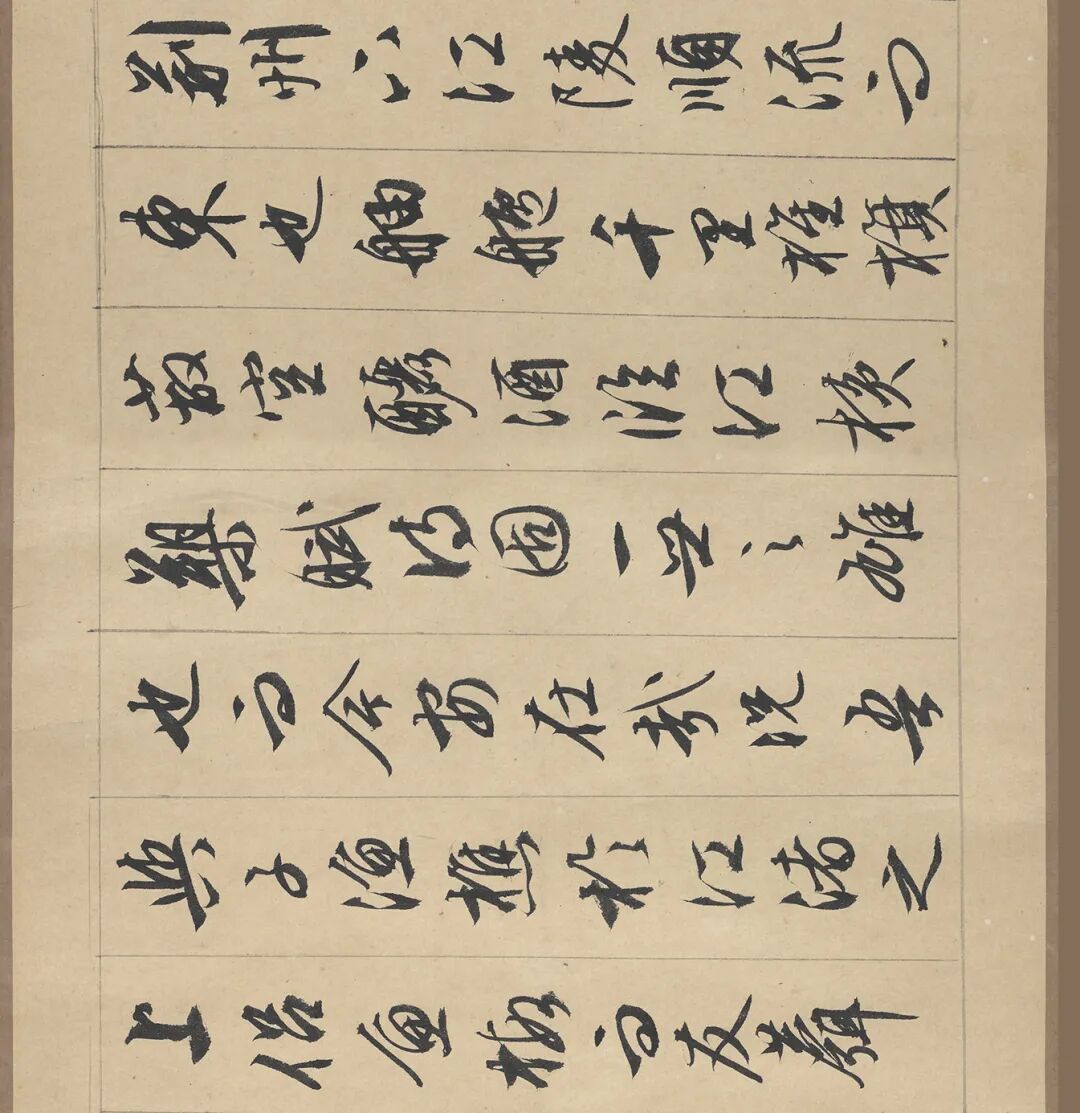 荊州下江陵順流而
東也舳艫千里旌旗
蔽空釃酒臨江橫
槊賦詩固一世之雄
也而今安在哉況吾
與子漁樵於江渚之
上侶魚蝦而友麋